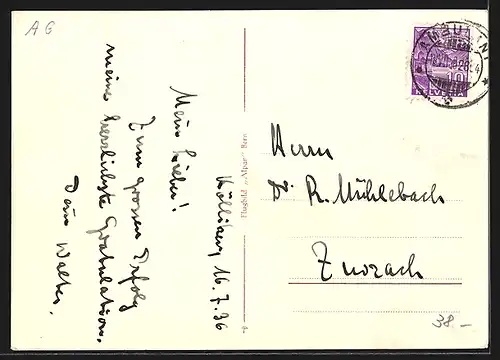 AG
Kölliken, 16.7.36
Mein Lieber!
Zum grossen Erfolg
meine herzlichste Gratulation.
Dein Walter.
Flugbild „Alpar" Bern
HELVETIA
10
Herrn
Dr. R. Mühlebach
Zurzach
38 –